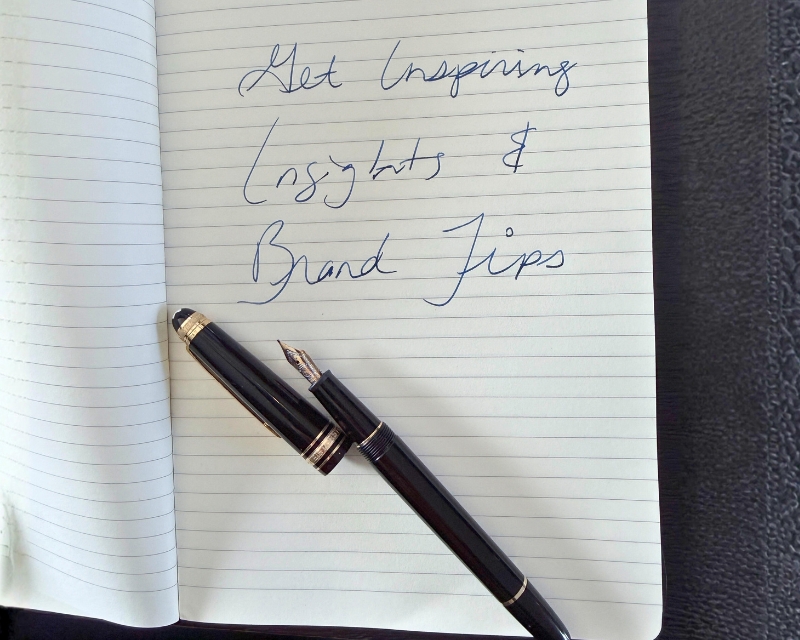 Get Inspiring
Insights &
Brand Tips